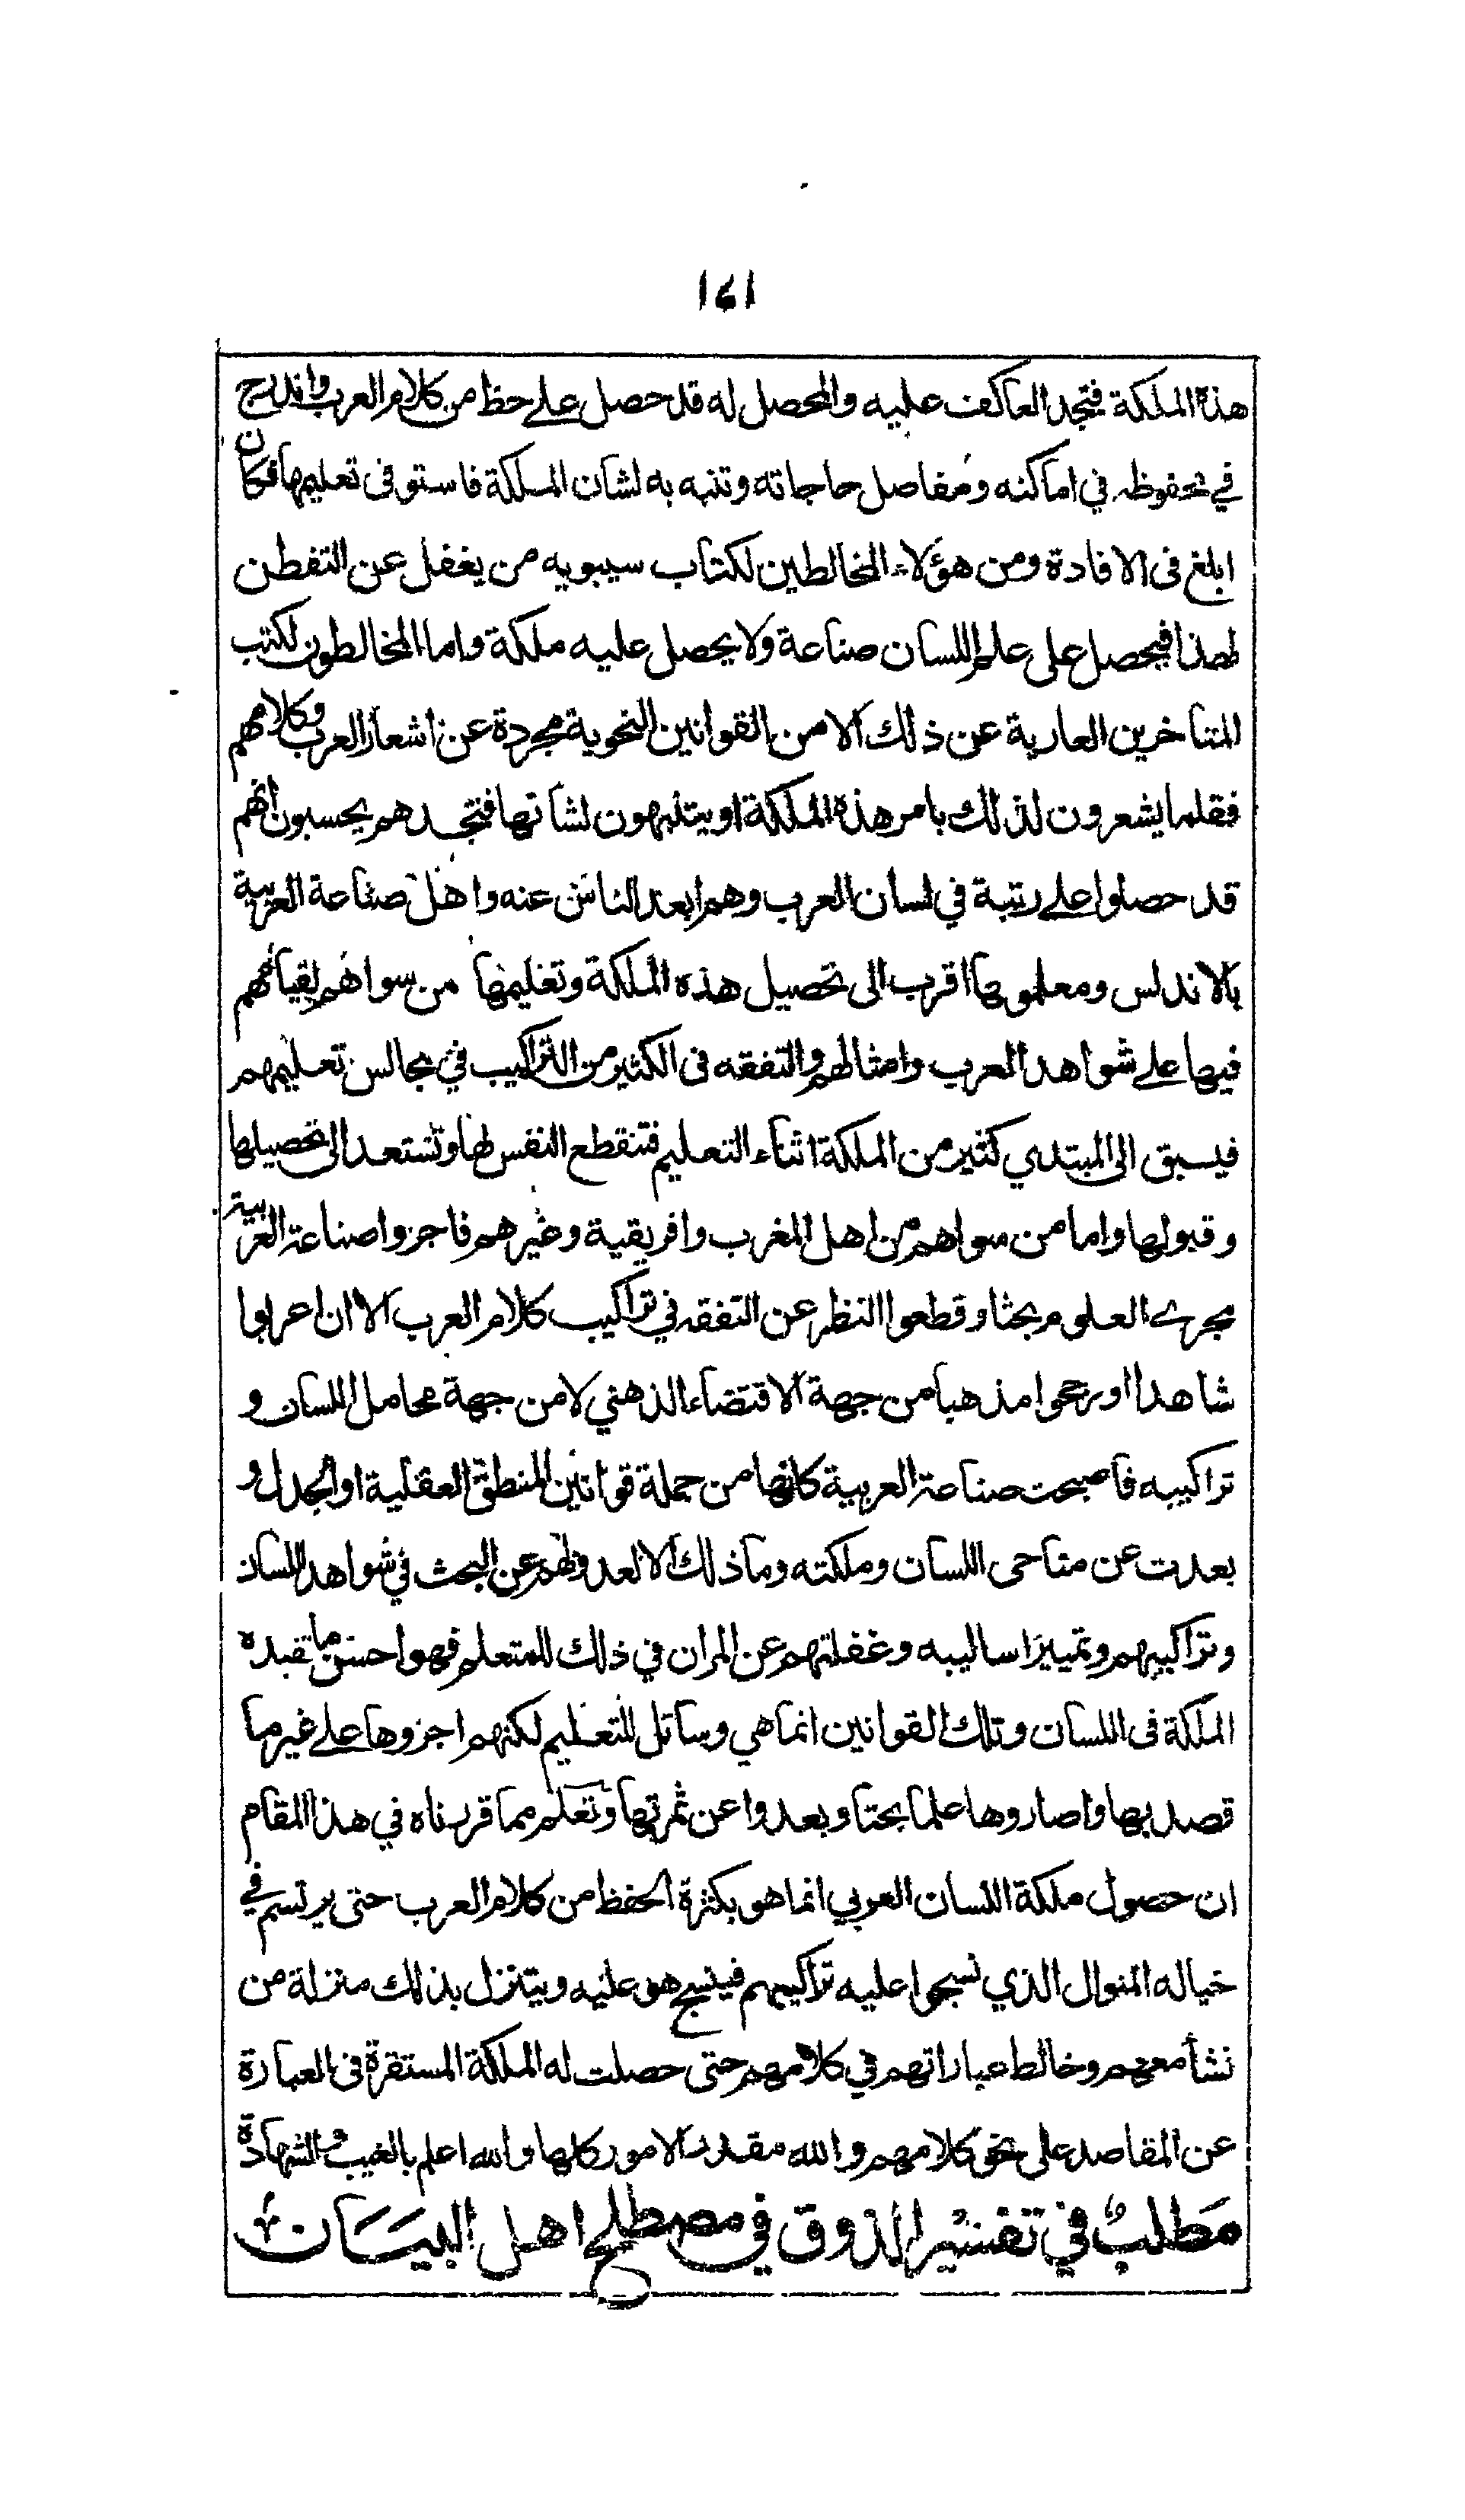 ١٤١
هذه الملكة فتجد العاكف عليه والمحصل له قد حصل على حظ من كلام العرب واندرج
في محفوظه في اماكنه ومفاصل حاجاته وتنبه به لشان الملكة فاستوفى تعليمها فكان
ابلغ في الافادة ومن هؤلاء المخالطين لكتاب سيبويه من يغفل عن التفطن
لهذا فيحصل على علم اللسان صناعة ولا يحصل عليه ملكة واما المخالطون لكتب
المتاخرين العارية عن ذلك الا من القوانين النحوية مجردة عن اشعار العرب وكلامهم
فقلما يشعرون لذلك بامر هذه الملكة او يتنبهون لشانها فتجدهم يحسبون انهم
قد حصلوا على رتبة في لسان العرب وهم ابعد الناس عنه واهل صناعة العربية
بالاندلس ومعلموها اقرب الى تحصيل هذه الملكة وتعليمها من سواهم لقيامهم
فيها على شواهد العرب وامثالهم والتفقه في الكثير من التراكيب في مجالس تعليمهم
فيسبق الى المبتدي كثير من الملكة اثناء التعليم فتنقطع النفس لها وتستعد الى تحصيلها
وقبولها واما من سواهم من اهل المغرب وافريقية وغيرهم فاجروا صناعة العربية
مجرى العلوم بحثا وقطعوا النظر عن التفقه في تراكيب كلام العرب الا ان اعربوا
شاهدا او رجحوا مذهبا من جهة الاقتضاء الذهني لا من جهة محامل اللسان و
تراكيبه فاصبحت صناعة العربية كانها من جملة قوانين المنطق العقلية او الجدل و
بعدت عن مناحى اللسان وملكته وما ذلك الا لعدولهم عن البحث في شواهد اللسان
وتراكيبهم وتمييز اساليبه وغفلتهم عن المران في ذلك للمتعلم فهو احسن ما تفيده
الملكة فى اللسان وتلك القوانين انما هي وسائل للتعليم لكنهم اجروها على غير ما
قصد بها واصاروها علما بحتا وبعدوا عن ثمرتها وتعلم مما قررناه في هذا المقام
ان حصول ملكة اللسان العربي انما هو بكثرة الحفظ من كلام العرب حتى يرتسم في
خياله المنوال الذي نسجوا عليه تراكيبهم فينسج هو عليه ويتنزل بذلك منزلة من
نشأ معهم وخالط عباراتهم في كلامهم حتى حصلت له الملكة المستقرة فى العبارة
عن المقاصد على نحو كلامهم والله مقدر الامور كلها والله اعلم بالغيب والشهادة
مطلب في تفسير الذوق في مصطلح اهل البيان